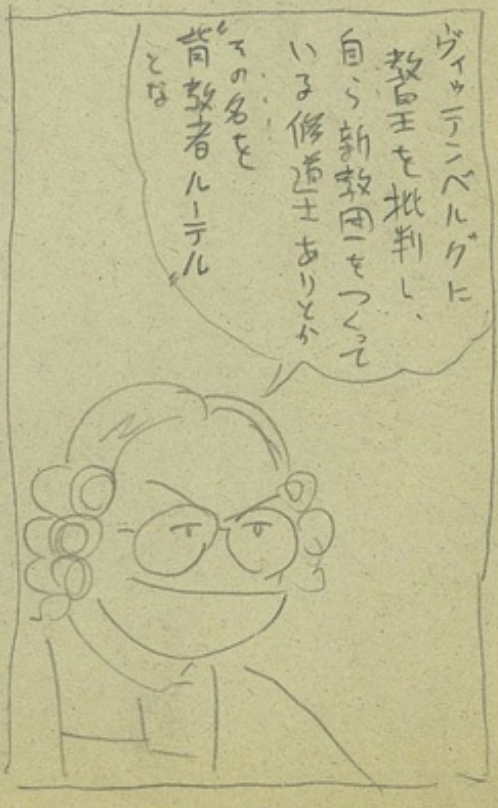 ヴィッテンベルグに
教皇を批判し、
自ら新教団をつくって
いる修道士ありとか
……
その名を
“背教者ルーテル”
とな